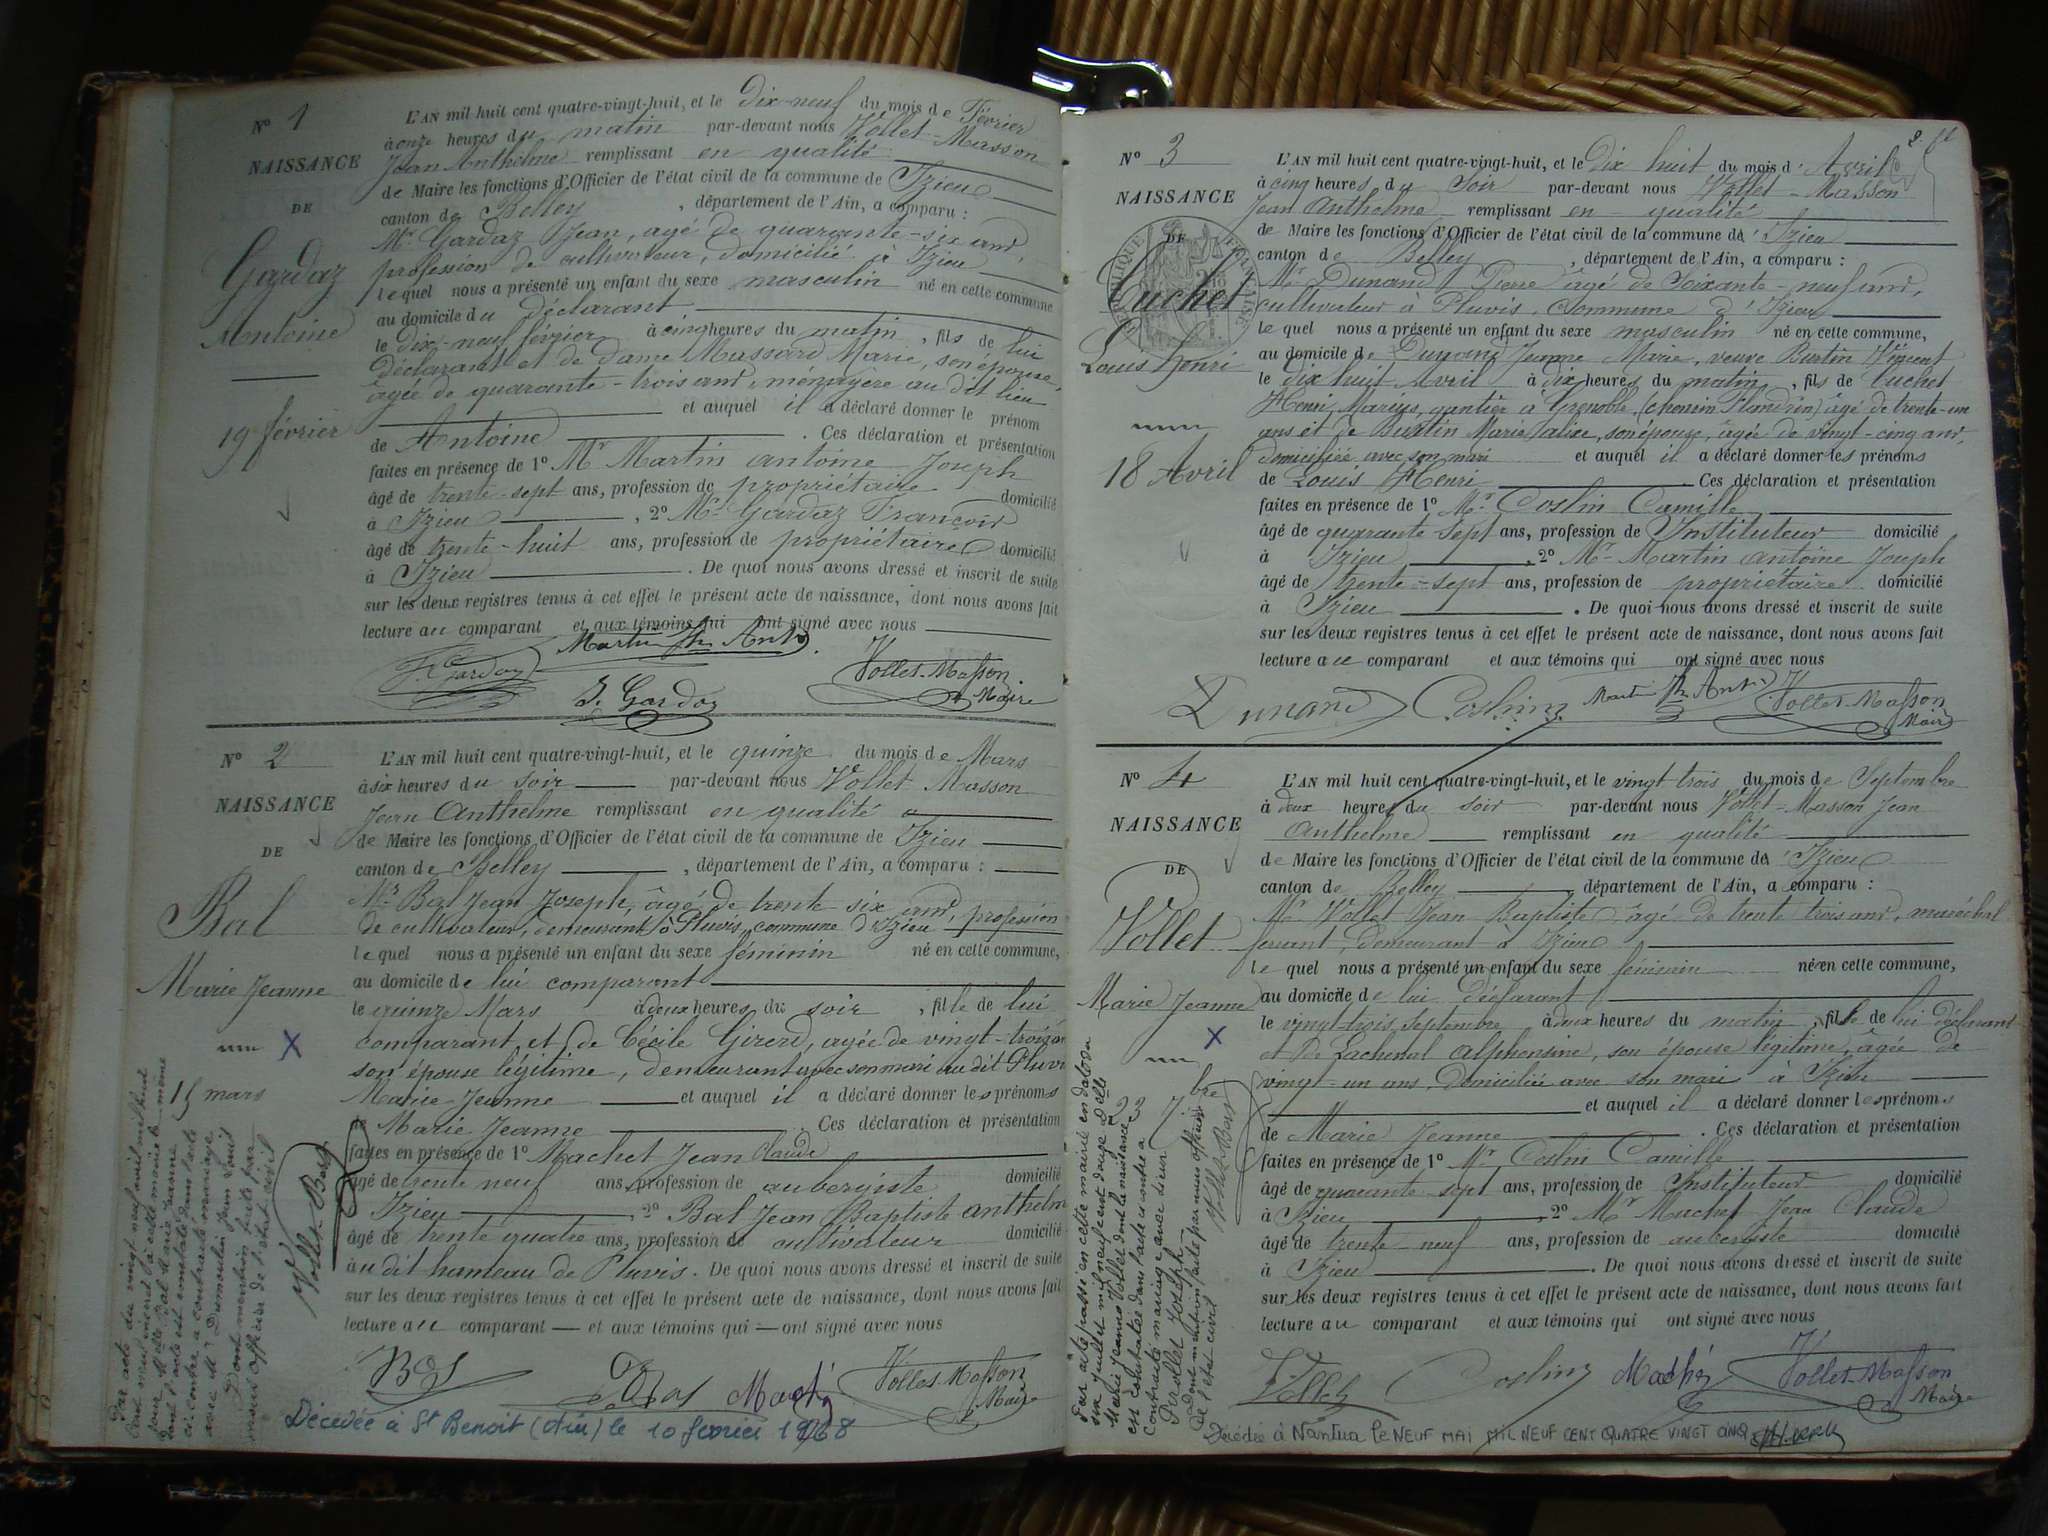 Nº 1
NAISSANCE
DE
Gardaz
Antoine
19 février
L'AN mil huit cent quatre-vingt-huit, et le dix-neuf du mois de Février
à onze heures du matin par-devant nous Vollet-Masson
Jean Anthelme remplissant en qualité
de Maire les fonctions d'Officier de l'état civil de la commune de Izieu
canton de Belley, département de l'Ain, a comparu :
Mr Gardaz Jean, agé de quarante-six ans,
profession de cultivateur, domicilié à Izieu
lequel nous a présenté un enfant du sexe masculin né en cette commune
au domicile du déclarant
le dix-neuf février à cinq heures du matin, fils de lui
déclarant et de dame Massard Marie, son épouse,
âgée de quarante-trois ans, ménagère au dit lieu
et auquel il a déclaré donner le prénom
de Antoine. Ces déclaration et présentation
faites en présence de 1º Mr Martin Antoine Joseph
âgé de trente-sept ans, profession de propriétaire domicilié
à Izieu, 2º Mr Gardaz François
âgé de trente-huit ans, profession de propriétaire domicilié
à Izieu. De quoi nous avons dressé et inscrit de suite
sur les deux registres tenus à cet effet le présent acte de naissance, dont nous avons fait
lecture au comparant et aux témoins qui ont signé avec nous
Martin Jh Ante
F. Gardaz
J. Gardaz
Vollet-Masson
Maire
Nº 2
NAISSANCE
DE
Bal
Marie Jeanne
15 mars
L'AN mil huit cent quatre-vingt-huit, et le quinze du mois de Mars
à six heures du soir par-devant nous Vollet Masson
Jean Anthelme remplissant en qualité
de Maire les fonctions d'Officier de l'état civil de la commune de Izieu
canton de Belley, département de l'Ain, a comparu :
Mr Bal Jean Joseph, âgé de trente six ans, profession
de cultivateur, demeurant à Pluvis, commune d'Izieu
lequel nous a présenté un enfant du sexe féminin né en cette commune,
au domicile de lui comparant
le quinze Mars à deux heures du soir, fille de lui
comparant et de Cécile Girerd, agée de vingt-trois ans
son épouse légitime, demeurant avec son mari au dit Pluvis
Marie Jeanne et auquel il a déclaré donner les prénoms
de Marie Jeanne. Ces déclaration et présentation
faites en présence de 1º Machet Jean Claude
âgé de trente neuf ans, profession de aubergiste domicilié
Izieu 2º Bal Jean Baptiste Anthelme
âgé de trente quatre ans, profession de cultivateur domicilié
au dit hameau de Pluvis. De quoi nous avons dressé et inscrit de suite
sur les deux registres tenus à cet effet le présent acte de naissance, dont nous avons fait
lecture au comparant — et aux témoins qui — ont signé avec nous
Vollet-Masson
Maire
Décédée à St Benoit (Ain) le 10 février 1968
Nº 3
NAISSANCE
DE
Cuchet
Louis Henri
18 Avril
L'AN mil huit cent quatre-vingt-huit, et le dix huit du mois d'Avril
à cinq heures du soir par-devant nous Vollet-Masson
Jean Anthelme remplissant en qualité
de Maire les fonctions d'Officier de l'état civil de la commune d'Izieu
canton de Belley, département de l'Ain, a comparu :
Mr Dunand Pierre âgé de soixante-neuf ans,
cultivateur à Pluvis, commune d'Izieu
lequel nous a présenté un enfant du sexe masculin né en cette commune,
au domicile de Dunand Jeanne Marie, veuve Burtin Vincent
le dix huit Avril à dix heures du matin, fils de Cuchet
Henri Marius, gantier à Grenoble (chemin Flandrin) âgé de trente-un
ans et de Burtin Marie, son épouse, âgée de vingt-cinq ans,
domiciliée avec son mari et auquel il a déclaré donner les prénoms
de Louis Henri. Ces déclaration et présentation
faites en présence de 1º Mr Coslin Camille
âgé de quarante sept ans, profession de Instituteur domicilié
à Izieu, 2º Mr Martin Antoine Joseph
âgé de trente-sept ans, profession de propriétaire domicilié
à Izieu. De quoi nous avons dressé et inscrit de suite
sur les deux registres tenus à cet effet le présent acte de naissance, dont nous avons fait
lecture au comparant et aux témoins qui ont signé avec nous
Dunand Coslin Martin Jh Ante Vollet-Masson
Maire
Nº 4
NAISSANCE
DE
Vollet
Marie Jeanne
23 7bre
L'AN mil huit cent quatre-vingt-huit, et le vingt trois du mois de Septembre
à deux heures du soir par-devant nous Vollet-Masson Jean
Anthelme remplissant en qualité
de Maire les fonctions d'Officier de l'état civil de la commune d'Izieu
canton de Belley, département de l'Ain, a comparu :
Mr Vollet Jean Baptiste, âgé de trente trois ans, maréchal
ferrant, demeurant à Izieu
lequel nous a présenté un enfant du sexe féminin né en cette commune,
au domicile de lui déclarant
le vingt-trois Septembre à deux heures du matin, fille de lui déclarant
et de Lachenal Alphonsine, son épouse légitime, âgée de
vingt-un ans, domiciliée avec son mari à Izieu
et auquel il a déclaré donner les prénoms
de Marie Jeanne. Ces déclaration et présentation
faites en présence de 1º Mr Coslin Camille
âgé de quarante-sept ans, profession de Instituteur domicilié
à Izieu, 2º Mr Machet Jean Claude
âgé de trente-neuf ans, profession de aubergiste domicilié
à Izieu. De quoi nous avons dressé et inscrit de suite
sur les deux registres tenus à cet effet le présent acte de naissance, dont nous avons fait
lecture au comparant et aux témoins qui ont signé avec nous
Vollet Coslin Machet Vollet-Masson
Maire
Décédée à Nantua le NEUF MAI MIL NEUF CENT QUATRE VINGT CINQ